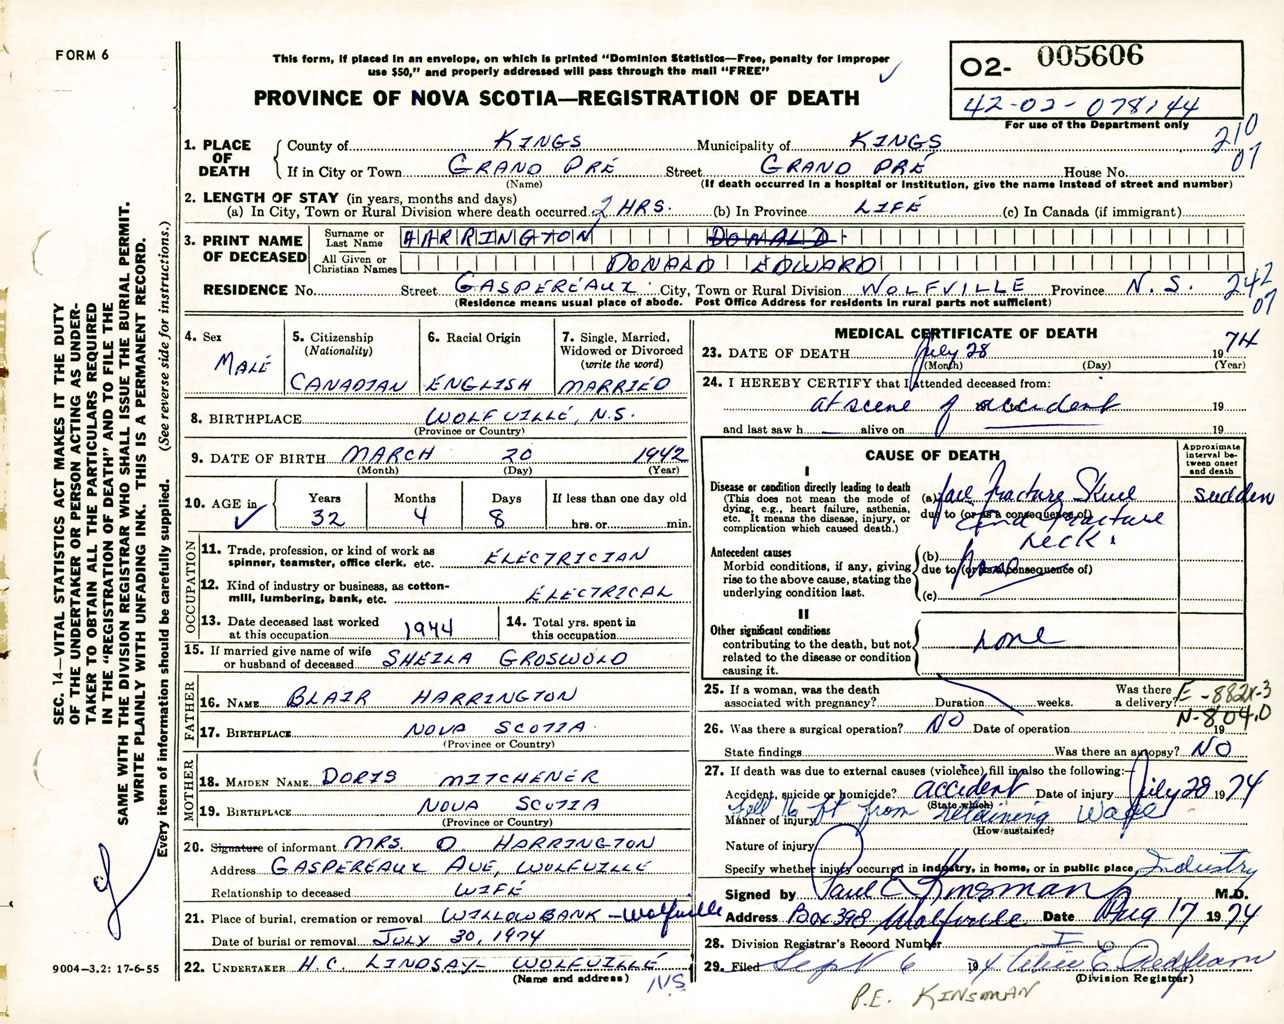 FORM 6
This form, if placed in an envelope, on which is printed "Dominion Statistics—Free, penalty for improper
use $50," and properly addressed will pass through the mail "FREE"
PROVINCE OF NOVA SCOTIA—REGISTRATION OF DEATH
02- 005606
42-02-078144
For use of the Department only
210
07
1. PLACE OF DEATH
County of KINGS Municipality of KINGS
If in City or Town GRAND PRÉ Street GRAND PRÉ House No.
(Name) (If death occurred in a hospital or institution, give the name instead of street and number)
2. LENGTH OF STAY (in years, months and days)
(a) In City, Town or Rural Division where death occurred 2 HRS. (b) In Province LIFE (c) In Canada (if immigrant)
3. PRINT NAME OF DECEASED
Surname or Last Name HARRINGTON DONALD
All Given or Christian Names DONALD EDWARD
RESIDENCE No. Street GASPEREAUX City, Town or Rural Division WOLFVILLE Province N.S. 242
07
(Residence means usual place of abode. Post Office Address for residents in rural parts not sufficient)
4. Sex MALE
5. Citizenship (Nationality) CANADIAN
6. Racial Origin ENGLISH
7. Single, Married, Widowed or Divorced (write the word) MARRIED
8. BIRTHPLACE WOLFVILLE, N.S.
(Province or Country)
9. DATE OF BIRTH MARCH 20 1942
(Month) (Day) (Year)
10. AGE in Years 32 Months 4 Days 8 If less than one day old hrs. or min.
OCCUPATION
11. Trade, profession, or kind of work as
spinner, teamster, office clerk, etc. ELECTRICIAN
12. Kind of industry or business, as cotton-
mill, lumbering, bank, etc. ELECTRICAL
13. Date deceased last worked
at this occupation 1974
14. Total yrs. spent in
this occupation
15. If married give name of wife
or husband of deceased SHEILA GROSWOLD
FATHER
16. NAME BLAIR HARRINGTON
17. BIRTHPLACE NOVA SCOTIA
(Province or Country)
MOTHER
18. MAIDEN NAME DORIS MITCHENER
19. BIRTHPLACE NOVA SCOTIA
(Province or Country)
20. Signature of informant MRS. D. HARRINGTON
Address GASPEREAUX AVE, WOLFVILLE
Relationship to deceased WIFE
21. Place of burial, cremation or removal WILLOWBANK - Wolfville
Date of burial or removal JULY 30, 1974
22. UNDERTAKER H.C. LINDSAY - WOLFVILLE
(Name and address) NS
MEDICAL CERTIFICATE OF DEATH
23. DATE OF DEATH July 28 1974
(Month) (Day) (Year)
24. I HEREBY CERTIFY that I attended deceased from:
at scene of accident 19
and last saw h alive on 19
CAUSE OF DEATH
Approximate interval between onset and death
I
Disease or condition directly leading to death
(This does not mean the mode of
dying, e.g., heart failure, asthenia,
etc. It means the disease, injury, or
complication which caused death.)
(a) fracture Skull sudden
due to (or as a consequence of)
and fracture
neck.
Antecedent causes
Morbid conditions, if any, giving
rise to the above cause, stating the
underlying condition last.
(b) none
due to (or as a consequence of)
(c)
II
Other significant conditions
contributing to the death, but not
related to the disease or condition
causing it.
none
25. If a woman, was the death
associated with pregnancy? Duration weeks. Was there
a delivery?
E-882X-3
N-804.0
26. Was there a surgical operation? NO Date of operation 19
State findings Was there an autopsy? NO
27. If death was due to external causes (violence) fill in also the following:—
Accident, suicide or homicide? accident Date of injury July 28 1974
(State which)
Manner of injury fell 16 ft from retaining Wall
(How sustained)
Nature of injury
Specify whether injury occurred in industry, in home, or in public place Industry
Signed by Paul E Kinsman M.D.
Address Box 398 Wolfville Date Aug 17 1974
28. Division Registrar's Record Number
29. Filed Sept 6 1974
(Division Registrar)
P.E. KINSMAN
SEC. 14—VITAL STATISTICS ACT MAKES IT THE DUTY
OF THE UNDERTAKER OR PERSON ACTING AS UNDER-
TAKER TO OBTAIN ALL THE PARTICULARS REQUIRED
IN THE "REGISTRATION OF DEATH" AND TO FILE THE
SAME WITH THE DIVISION REGISTRAR WHO SHALL ISSUE THE BURIAL PERMIT.
WRITE PLAINLY WITH UNFADING INK. THIS IS A PERMANENT RECORD.
Every item of information should be carefully supplied. (See reverse side for instructions.)
9004—3.2: 17-6-55